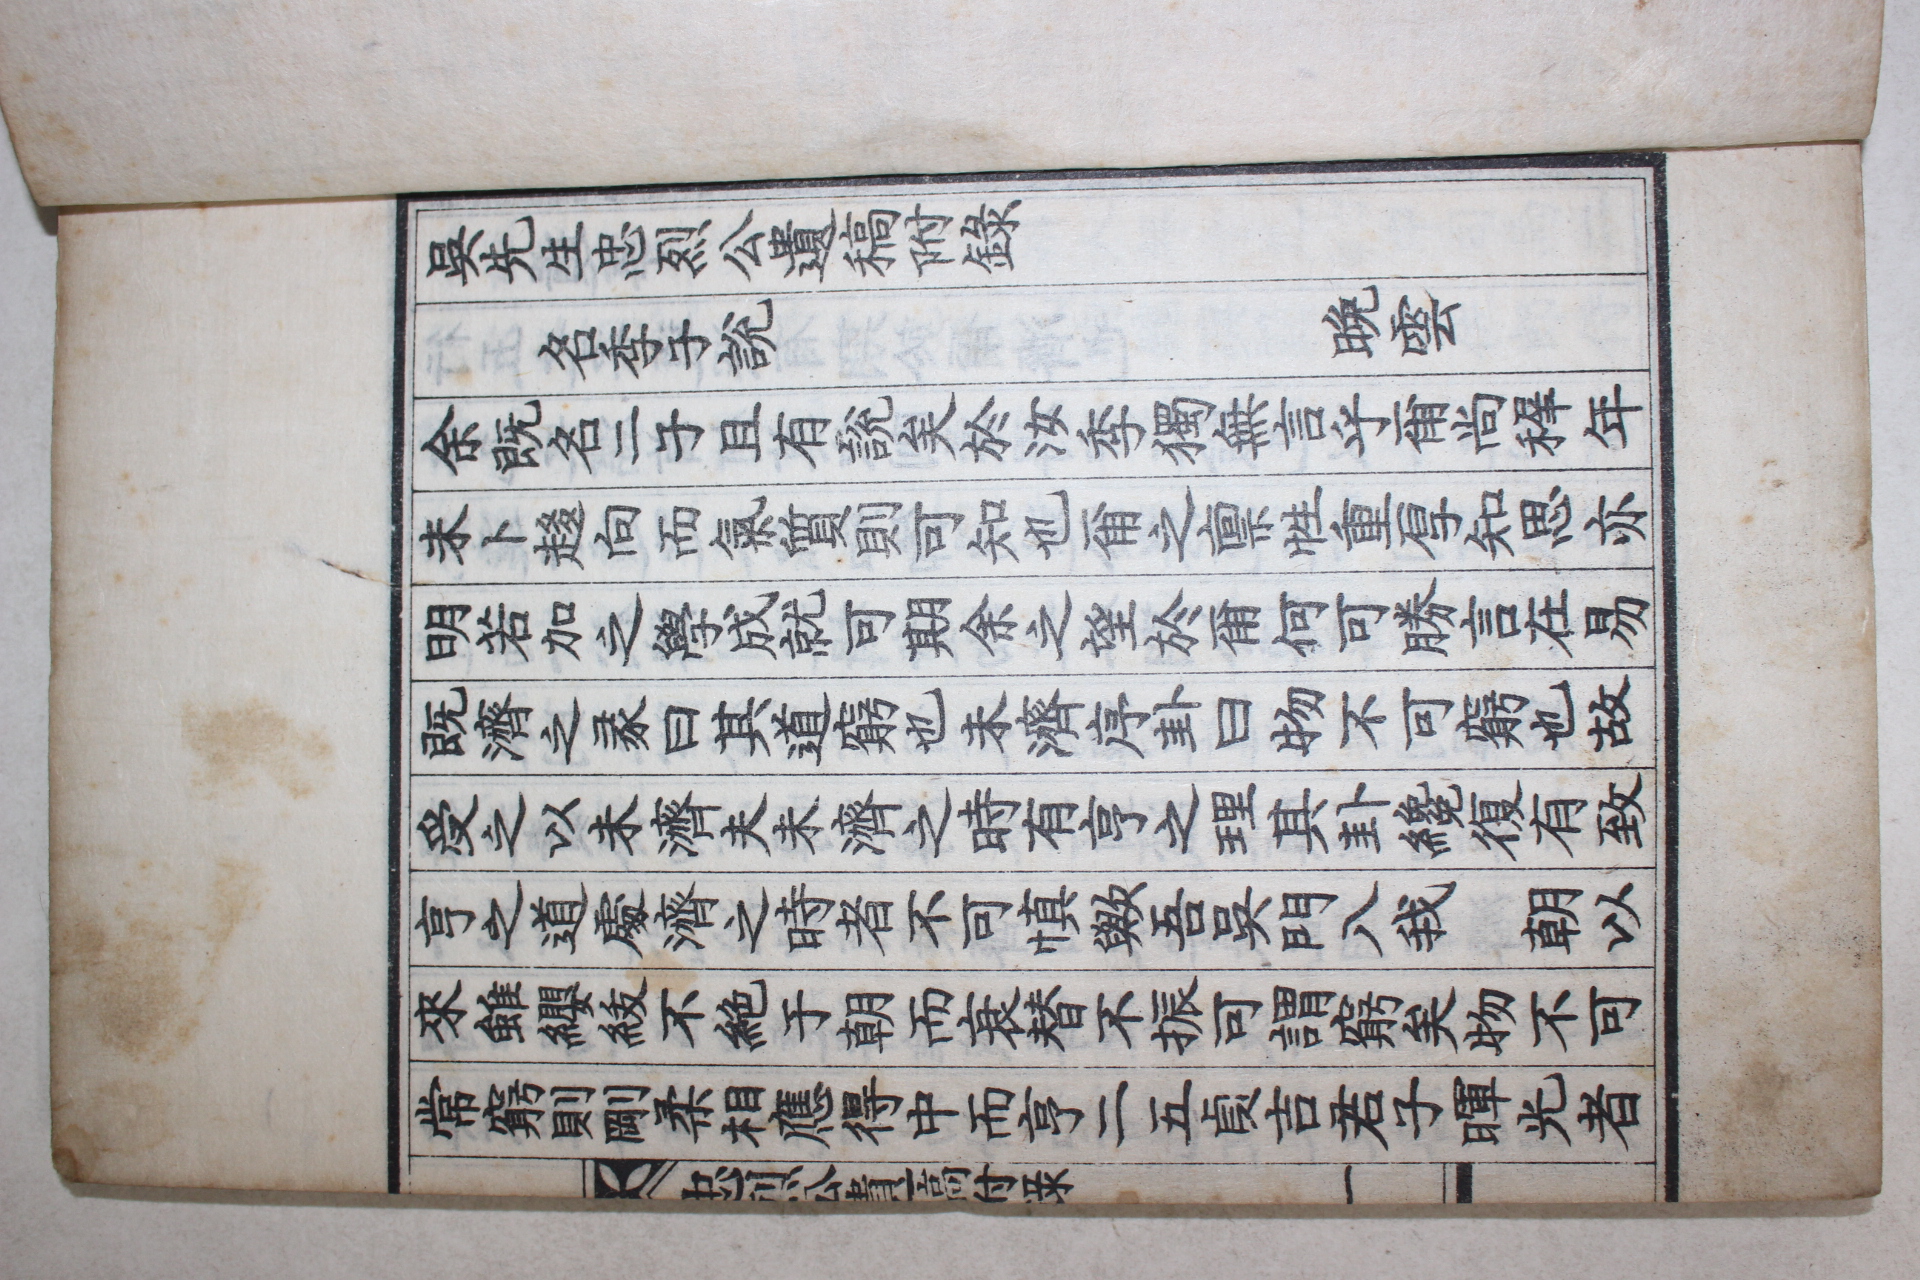 吳先生忠烈公遺稿附錄
名季子說 晩雲
余旣名二子且有說矣於汝季獨無言乎爾尙穉年
未卜趍向而氣質則可知也爾之稟性重厚知思亦
明若加之學成就可期余之望於爾何可勝言在易
旣濟之彖曰其道窮也未濟序卦曰物不可窮也故
受之以未濟夫未濟之時有亨之理其卦纔復有致
亨之道處濟之時者不可愼歟吾吳門入我 朝以
來雖纓紱不絕于朝而衰替不振可謂窮矣物不可
常窮則剛柔相應得中而亨二五貞吉君子暉光者
忠烈公遺稿附錄 一